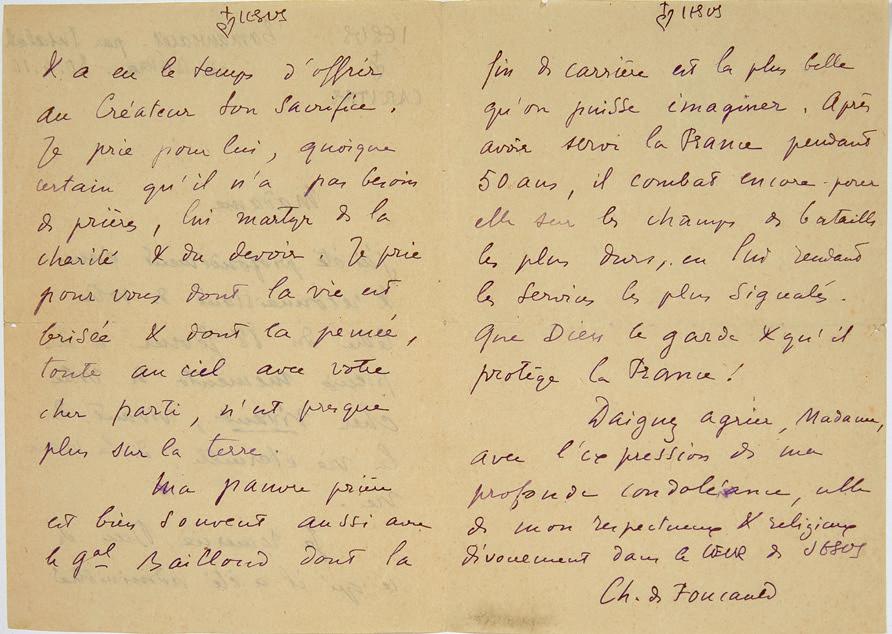 JESUS
X a eu le temps d'offrir
au Créateur son sacrifice.
Je prie pour lui, quoique
certain qu'il n'a pas besoin
de prières, lui martyr de la
charité & du devoir. Je prie
pour vous dont la vie est
brisée & dont la pensée,
toute au ciel avec votre
cher parti, n'est presque
plus sur la terre.
Ma pauvre prière
est bien souvent aussi avec
le gal Bailloud dont la
JESUS
fin de carrière est la plus belle
qu'on puisse imaginer. Après
avoir servi la France pendant
50 ans, il combat encore pour
elle sur les champs de bataille
les plus durs, en lui rendant
les services les plus signalés.
Que Dieu le garde & qu'il
protège la France!
Daignez agréer, Madame,
avec l'expression de ma
profonde condoléance, celle
de mon respectueux & religieux
dévouement dans le CŒUR de JESUS
Ch. de Foucauld